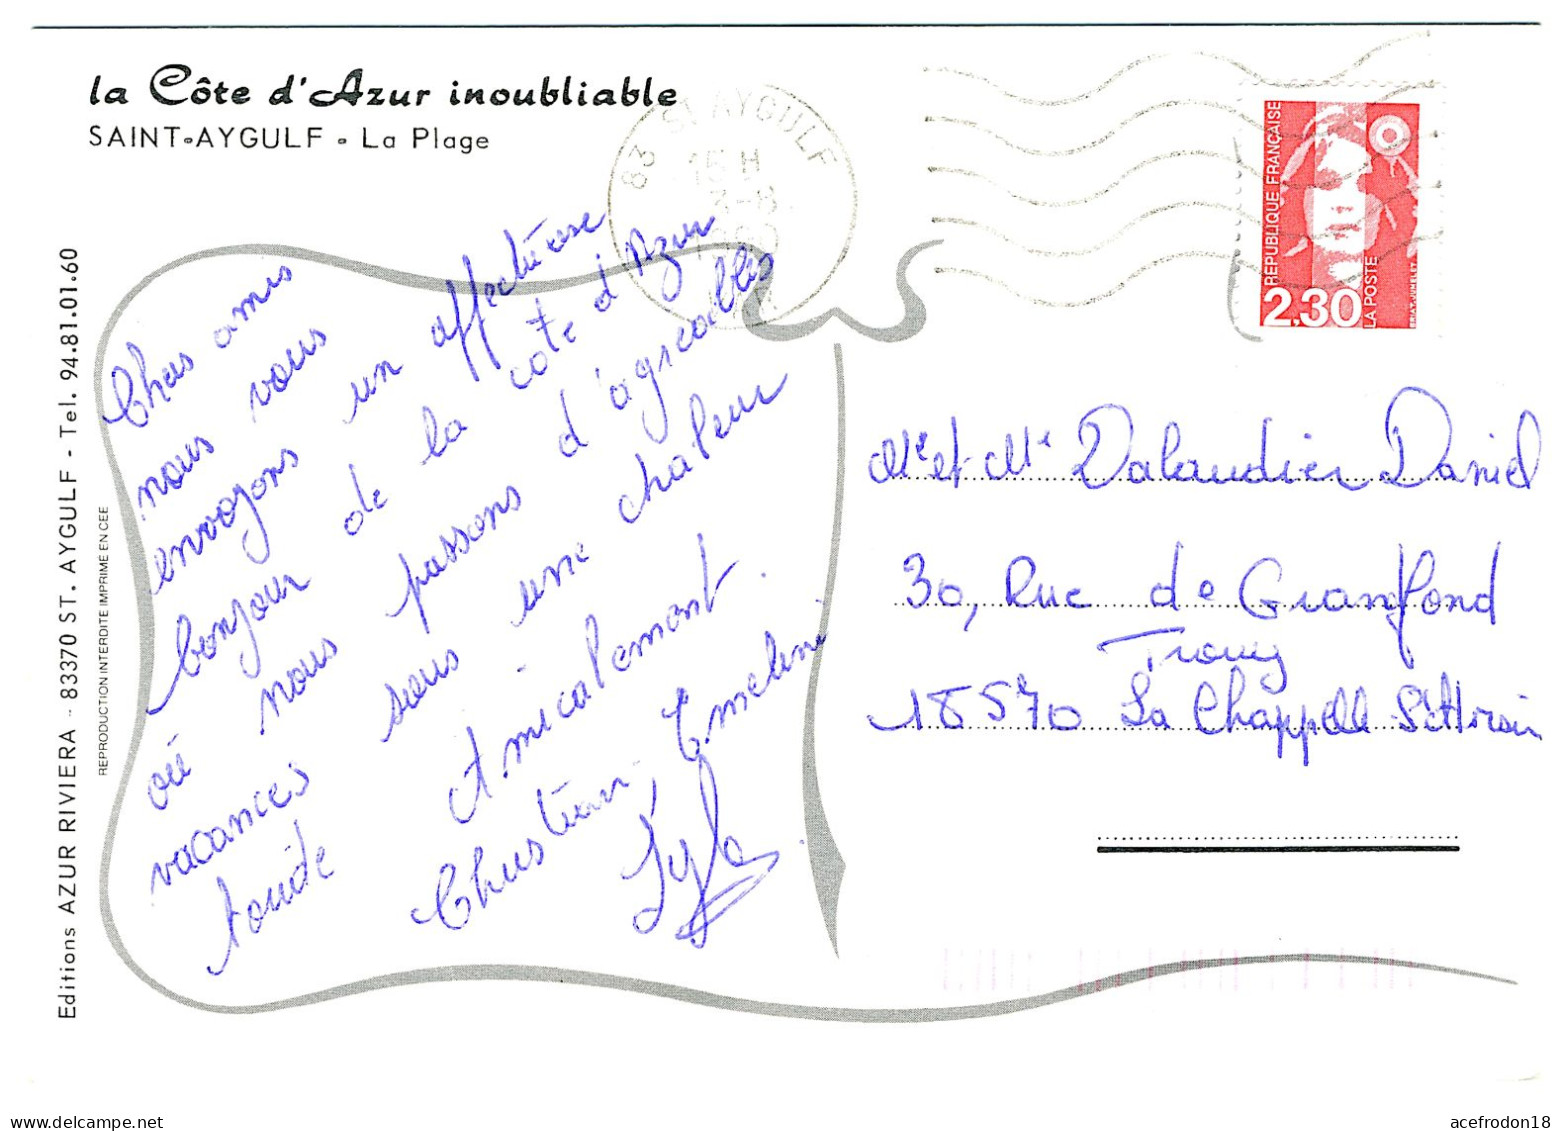 la Côte d'Azur inoubliable
SAINT-AYGULF - La Plage
ST AYGULF
83
15 H
3-8
REPUBLIQUE FRANÇAISE
2,30
LA POSTE
Editions AZUR RIVIERA - 83370 ST. AYGULF - Tel. 94.81.01.60
REPRODUCTION INTERDITE IMPRIME EN CEE
Chers amis
nous vous
envoyons un affectueuse
bonjour de la cote d'Azur
où nous passons d'agreables
vacances sous une chaleur
toride. Amicalement.
Christian. Emeline
Mr et Me Dalaudier Daniel
30, Rue de Granfond
Trouy
18570 La Chappelle St Ursin
www.delcampe.net
acefrodon18